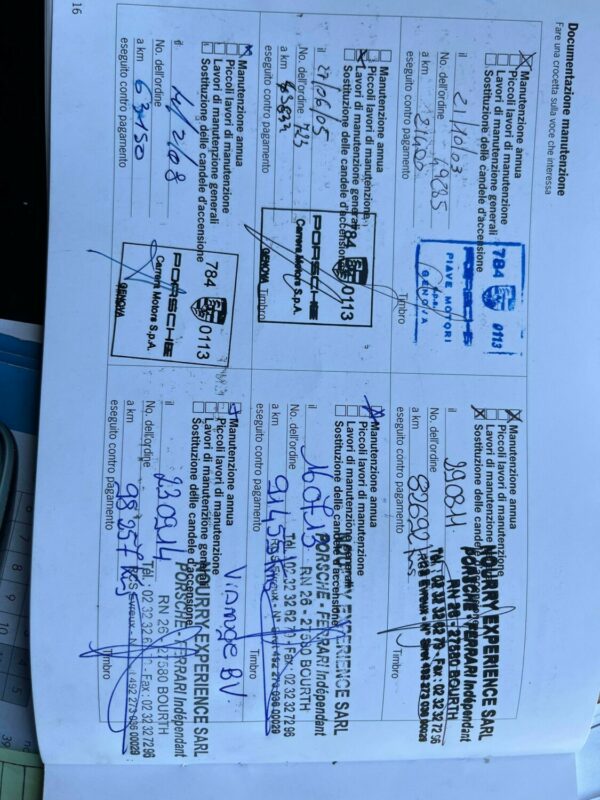 Documentazione manutenzione
Fare una crocetta sulla voce che interessa
Manutenzione annua
Piccoli lavori di manutenzione
Lavori di manutenzione generali
Sostituzione delle candele d'accensione
il 21/10/03
No. dell'ordine
a km
eseguito contro pagamento
Timbro
784 0113
PORSCHE
PIAVE MOTORI
GENOVA
Manutenzione annua
Piccoli lavori di manutenzione
Lavori di manutenzione generali
Sostituzione delle candele d'accensione
il 290311
No. dell'ordine
a km 82692 kms
eseguito contro pagamento
NOURRY EXPERIENCE SARL
PORSCHE - FERRARI Indépendant
RN 26 - 27580 BOURTH
Tél. : 02 32 32 62 79 - Fax : 02 32 32 72 96
RCS Evreux - N° Siret 492 273 036 00029
Manutenzione annua
Piccoli lavori di manutenzione
Lavori di manutenzione generali
Sostituzione delle candele d'accensione
il 27/06/05
No. dell'ordine 723
a km
eseguito contro pagamento
Timbro
784 0113
PORSCHE
Carrera Motors S.p.A.
GENOVA
Manutenzione annua
Piccoli lavori di manutenzione
Lavori di manutenzione generali
Sostituzione delle candele d'accensione
il 160713
No. dell'ordine
a km
eseguito contro pagamento
Timbro
NOURRY EXPERIENCE SARL
PORSCHE - FERRARI Indépendant
RN 26 - 27580 BOURTH
Tél. : 02 32 32 62 79 - Fax : 02 32 32 72 96
RCS Evreux - N° Siret 492 273 036 00029
Manutenzione annua
Piccoli lavori di manutenzione
Lavori di manutenzione generali
Sostituzione delle candele d'accensione
il 14/2/08
No. dell'ordine
a km 63150
eseguito contro pagamento
784 0113
PORSCHE
Carrera Motors S.p.A.
GENOVA
Manutenzione annua
Vidange BV
Piccoli lavori di manutenzione
Lavori di manutenzione generali
Sostituzione delle candele d'accensione
il 230914
No. dell'ordine
a km 98257 kms
eseguito contro pagamento
Timbro
NOURRY EXPERIENCE SARL
PORSCHE - FERRARI Indépendant
RN 26 - 27580 BOURTH
Tél. : 02 32 32 62 79 - Fax : 02 32 32 72 96
RCS Evreux - N° Siret 492 273 036 00029
16